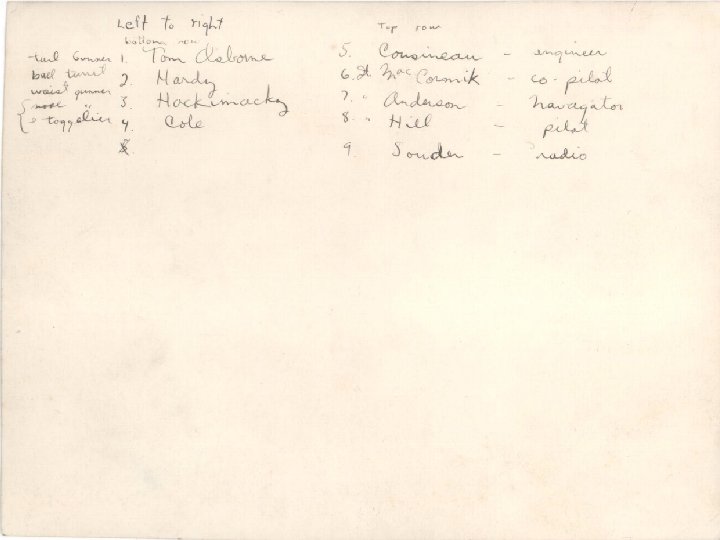 Left to right
bottom row
tail Gunner 1. Tom Osborne
ball turret 2. Hardy
waist gunner 3. Hockimacky
{ nose " 4. Cole
{ & toggelier
5.
Top row
5. Cousineau - engineer
6. Lt. MacCormik - co-pilot
7. " Anderson - navagator
8. " Hill - pilot
9. Souder - radio